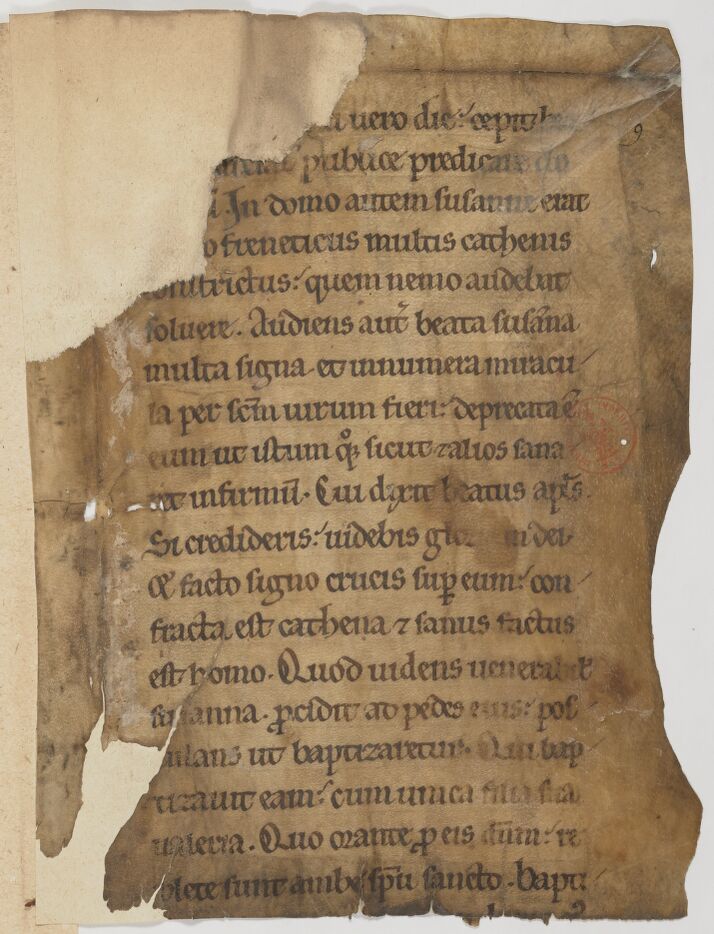 uero die: cepit
publice predicare
In domo autem susanne erat
freneticus multis cathenis
constrictus: quem nemo audebat
soluere. Audiens aut̃ beata susãna
multa signa et innumera miracu
la per sc̃m uirum fieri: deprecata ẽ
eum ut istum qͦꝫ sicut ⁊ alios sana
ret infirmũ. Cui dixit beatus apl̃s.
Si credideris: uidebis dei.
Et facto signo crucis suꝑ eum: con
fracta est cathena ⁊ sanus factus
est homo. Quod uidens uenerabilis
susanna. ꝓcidit ad pedes eius: pos
tulans ut baptizaretur. Qui bap
tizauit eam: cum unica filia sua
ualeria. Quo orante ꝓ eis dñm: re
plete sunt ambe sp̃u sancto. bapti
9